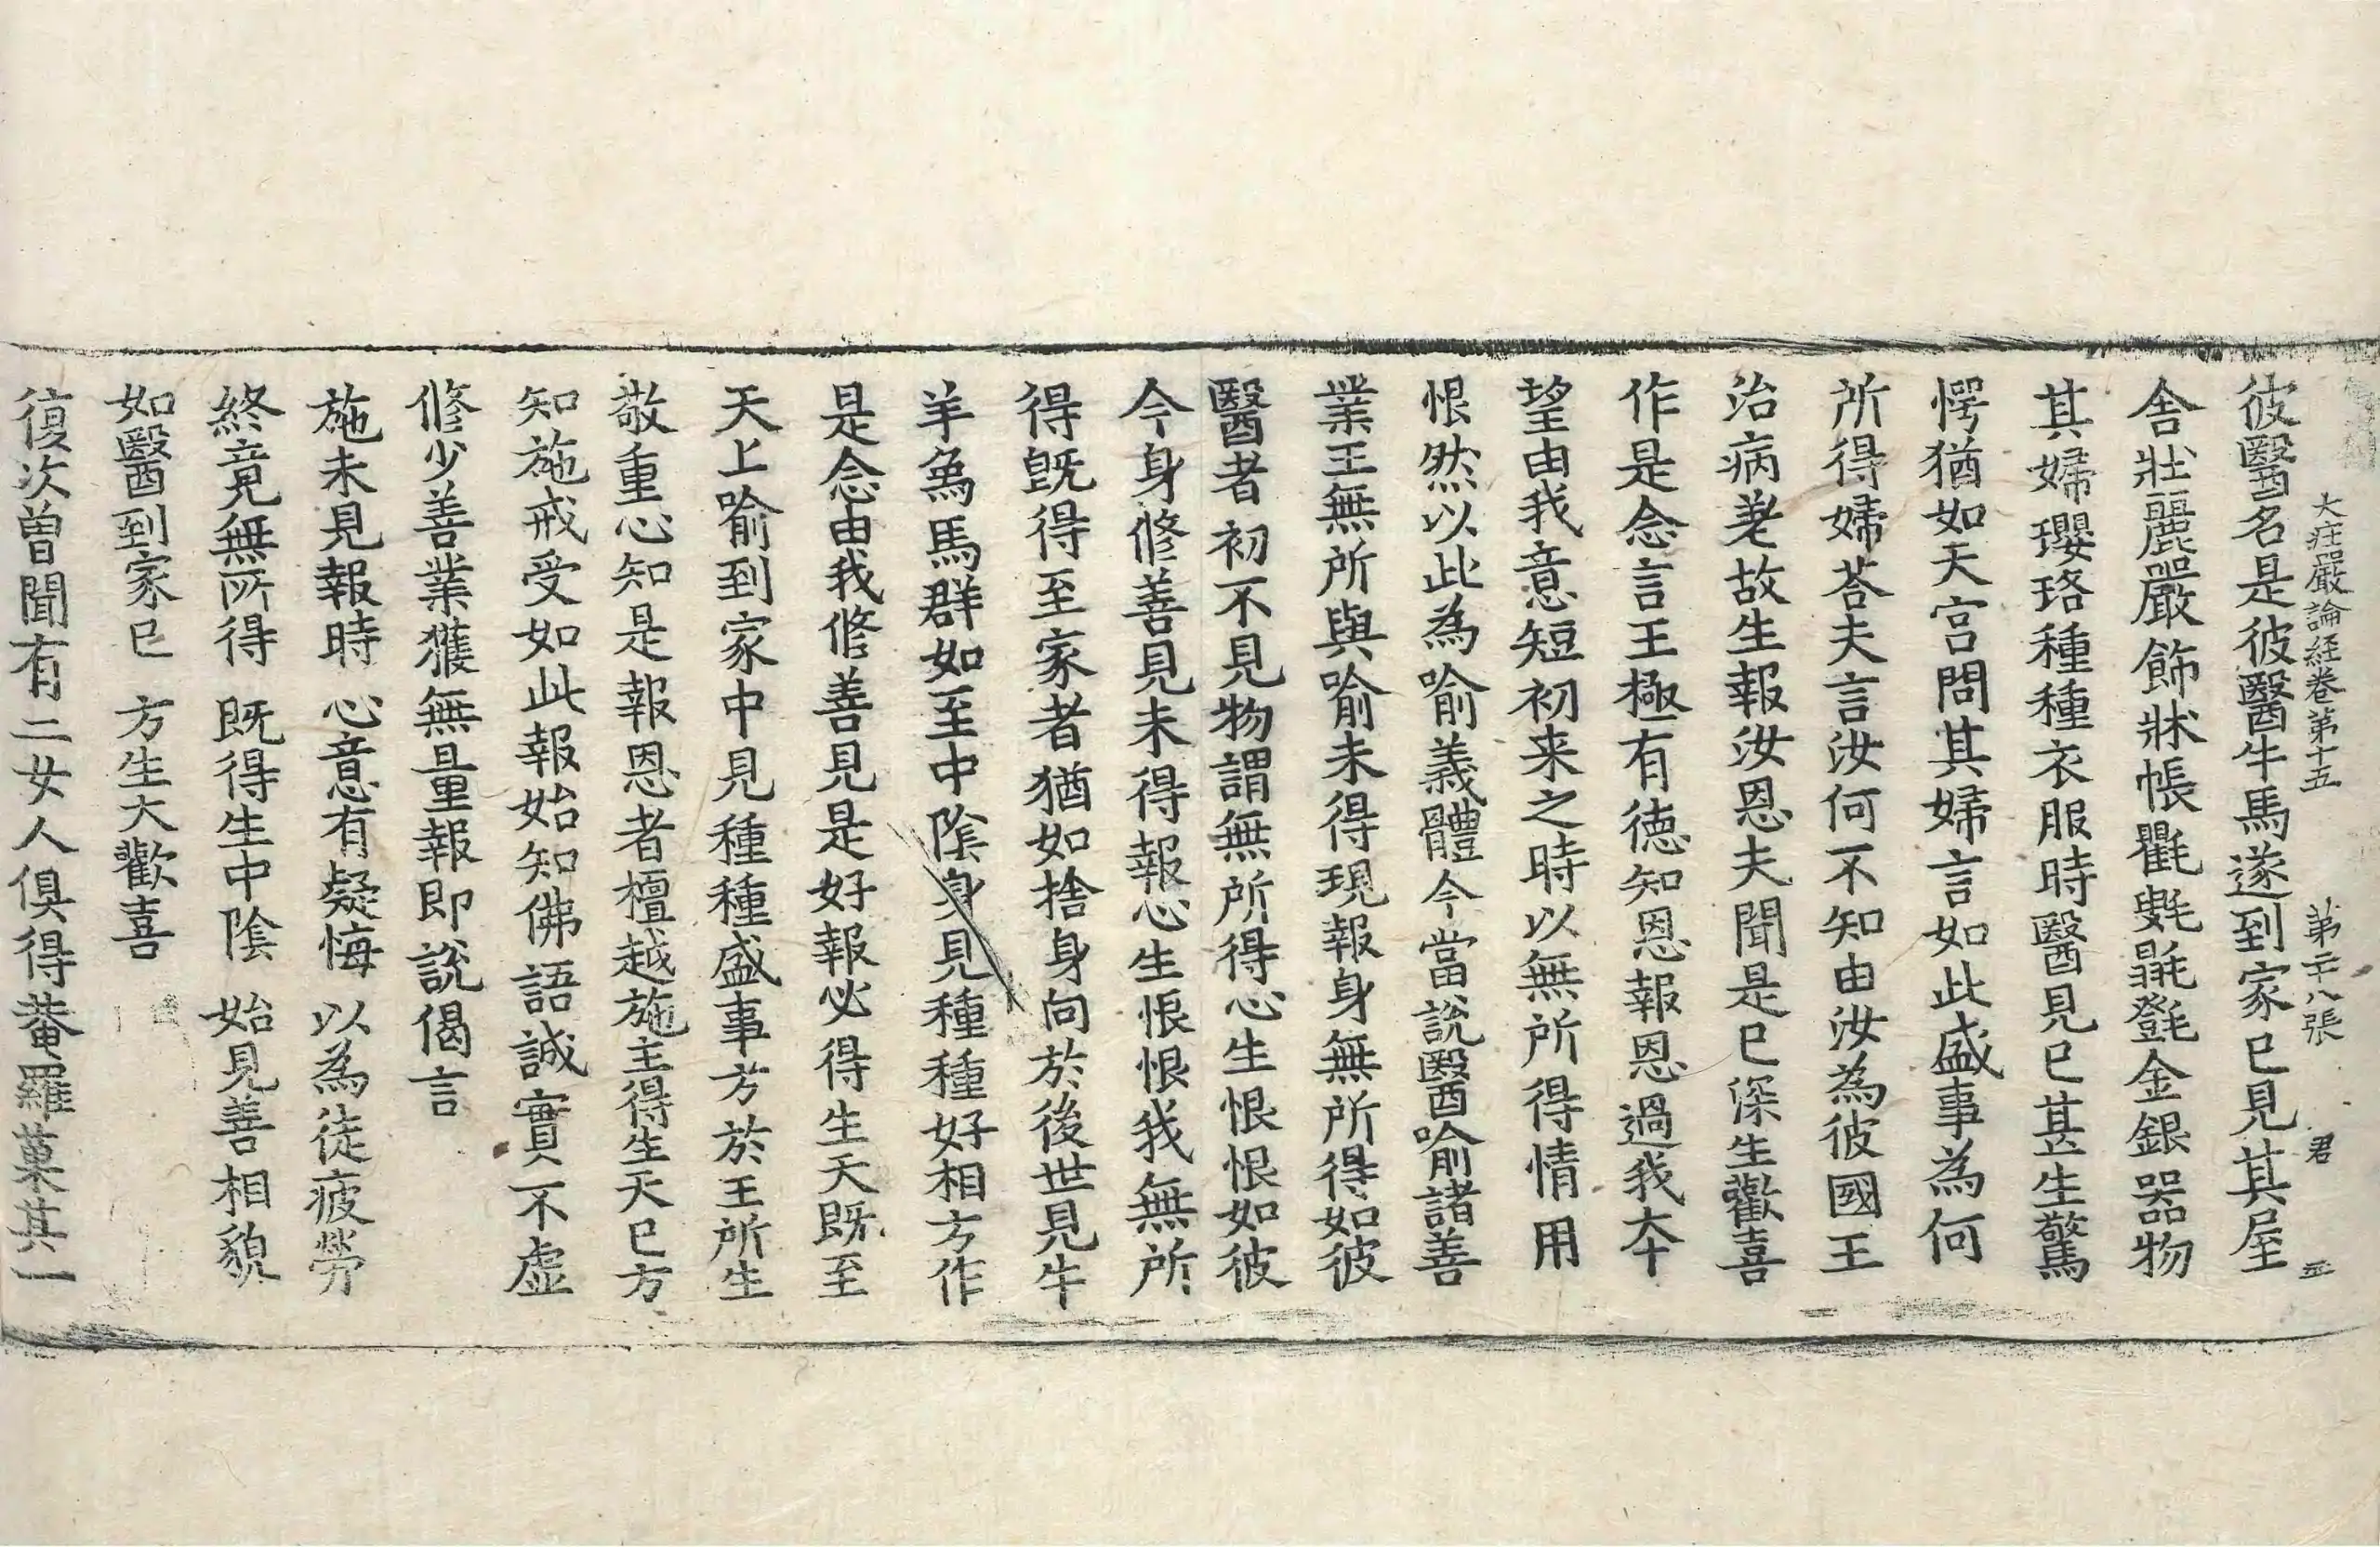 大莊嚴論経卷第十五 第二十八張 君
彼醫名是彼醫牛馬遂到家已見其屋
舍壯麗嚴飾牀帳氍毹毾㲪金銀器物
其婦瓔珞種種衣服時醫見已甚生驚
愕猶如天宮問其婦言如此盛事為何
所得婦荅夫言汝何不知由汝為彼國王
治病差故生報汝恩夫聞是已深生歡喜
作是念言王極有徳知恩報恩過我本
望由我意短初来之時以無所得情用
恨然以此為喻義體今當說醫喻諸善
業王無所與喻未得現報身無所得如彼
醫者初不見物謂無所得心生恨恨如彼
今身修善見未得報心生恨恨我無所
得既得至家者猶如捨身向於後世見牛
羊象馬群如至中陰身見種種好相方作
是念由我修善見是好報必得生天既至
天上喻到家中見種種盛事方於王所生
敬重心知是報恩者檀越施主得生天已方
知施戒受如此報始知佛語誠實不虛
修少善業獲無量報即說偈言
施未見報時 心意有疑悔 以為徒疲勞
終竟無所得 既得生中陰 始見善相貌
如醫到家已 方生大歡喜
復次曽聞有二女人俱得菴羅菓其一